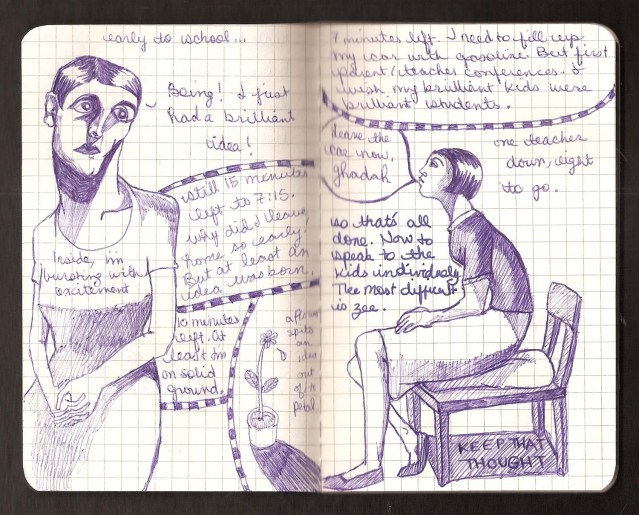 early to school...
Boing! I just
had a brilliant
idea!
Inside, im
bursting with
excitement
still 15 minutes
left to 7:15.
why did I leave
home so early.
But at least an
idea was born.
10 minutes
left. At
least im
on solid
ground.
a flower
spits
an
idea
out
of its
petal
minutes left. I need to fill up
my car with gasoline. But first
parent/teacher conferences. I
wish my brilliant kids were
brilliant students.
leave the
car now,
ghadah
one teacher
down, eight
to go.
so that's all
done. Now to
speak to the
kids individualy.
The most difficult
is zee.
KEEP THAT
THOUGHT